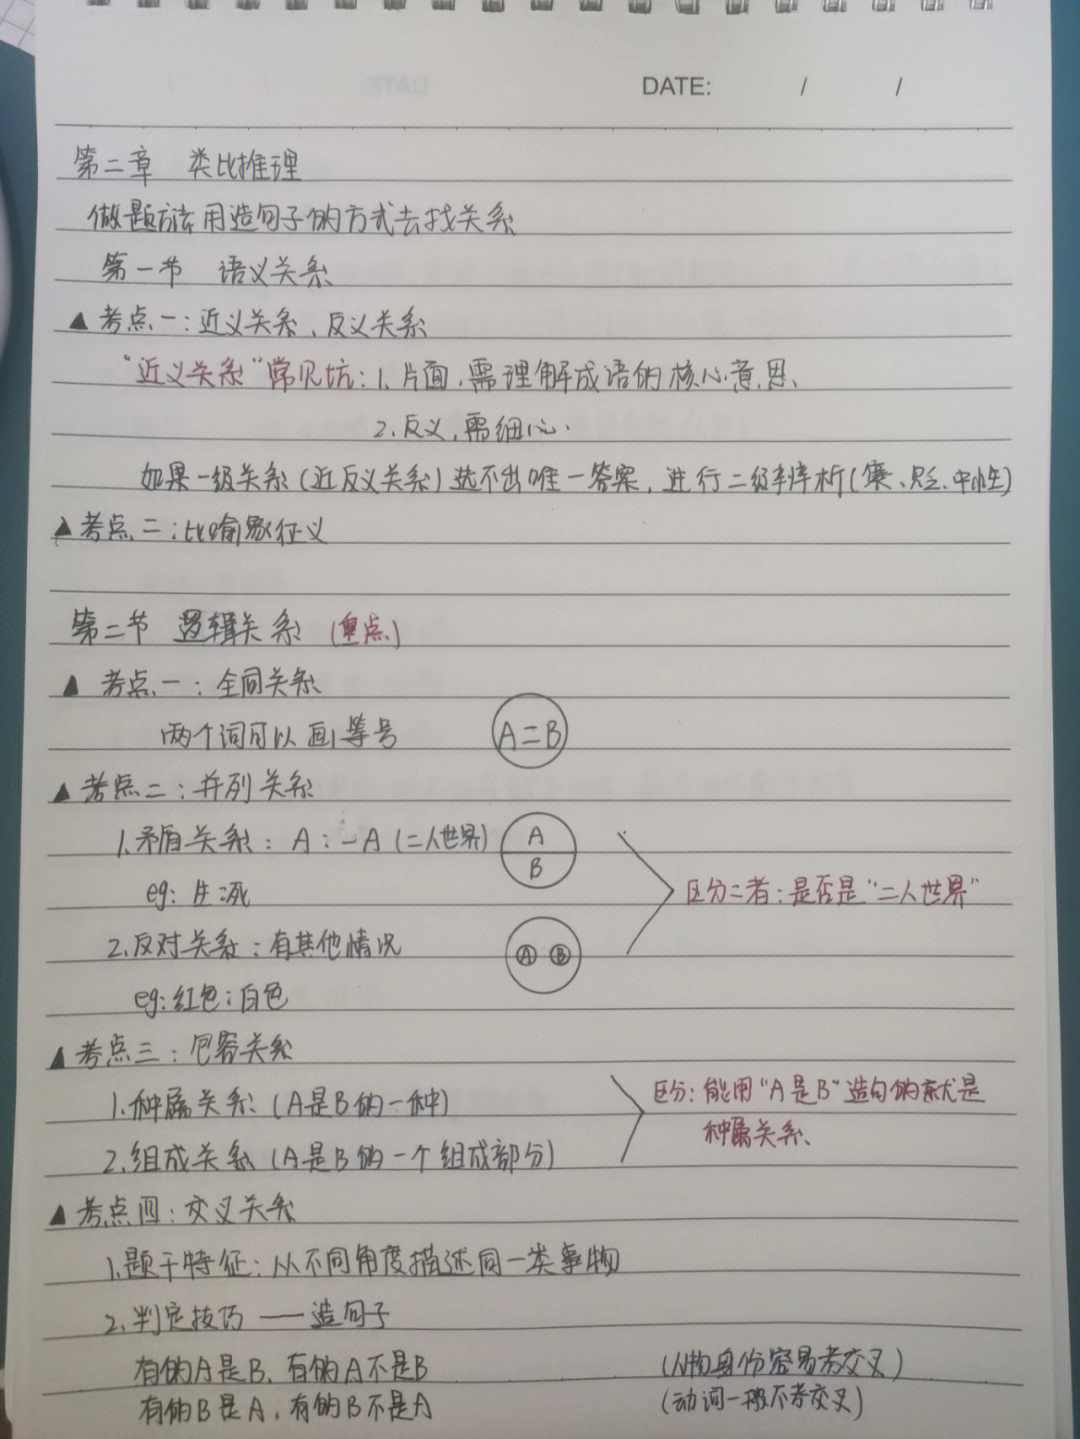 DATE: / /
第二章 类比推理
做题方法 用造句子的方式去找关系
第一节 语义关系
▲考点一:近义关系、反义关系
"近义关系"常见坑:1.片面,需理解成语的核心意思、
2.反义,需细心.
如果一级关系(近反义关系)选不出唯一答案,进行二级辨析(褒、贬、中性)
▲考点二:比喻象征义
第二节 逻辑关系 (重点)
▲考点一:全同关系
两个词可以画等号 A=B
▲考点二:并列关系
1.矛盾关系:A:-A(二人世界) A
B
eg:生:死 区分二者:是否是"二人世界"
2.反对关系:有其他情况 A B
eg:红色:白色
▲考点三:包容关系
1.种属关系(A是B的一种) 区分:能用"A是B"造句的就是
种属关系、
2.组成关系(A是B的一个组成部分)
▲考点四:交叉关系
1.题干特征:从不同角度描述同一类事物
2.判定技巧——造句子
有的A是B,有的A不是B (人物身份容易考交叉)
有的B是A,有的B不是A (动词一般不考交叉)